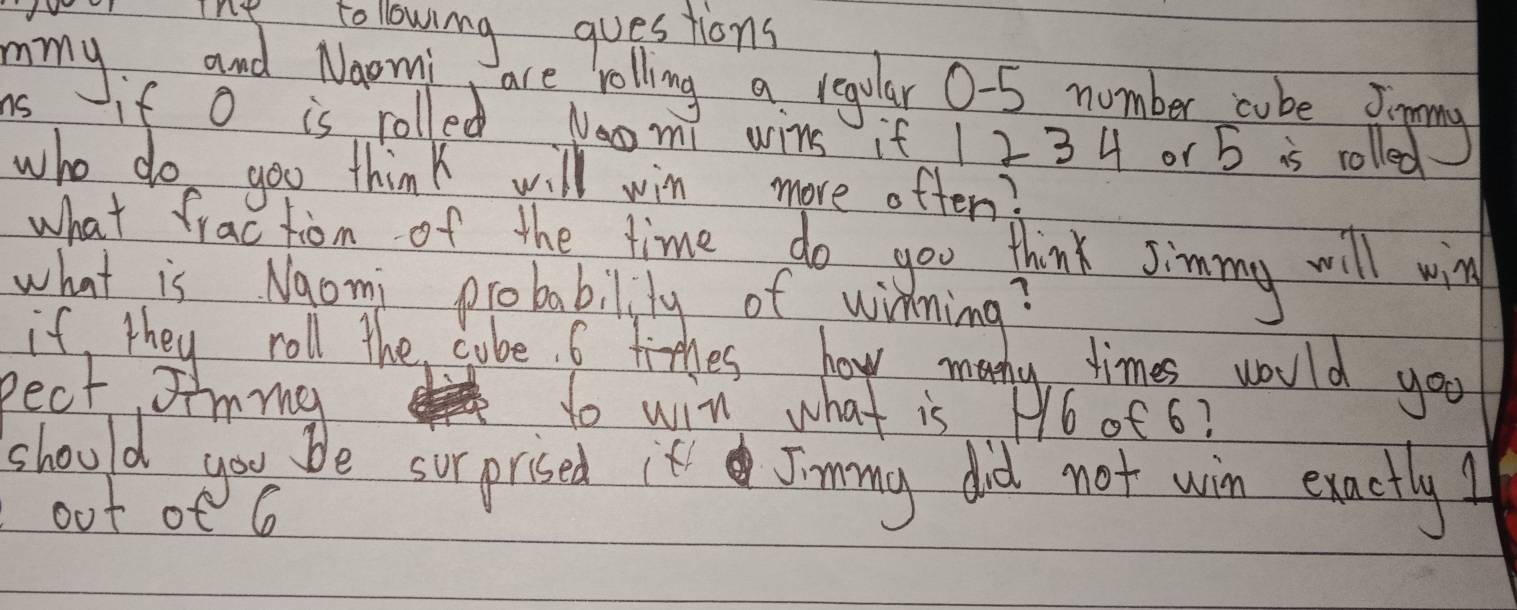 the following questions
mmy and Naomi are rolling a regular 0-5 number cube Jimmy
ns if 0 is rolled Naomi wins if 1 2 3 4 or 5 is rolled
who do you think will win more often?
what fraction of the time do you think Jimmy will win
what is Naomi probability of winning?
if they roll the cube 6 times how many times would you
pect Jimmy to win what is 1/6 of 6?
should you be surprised if Jimmy did not win exactly 1
out of 6